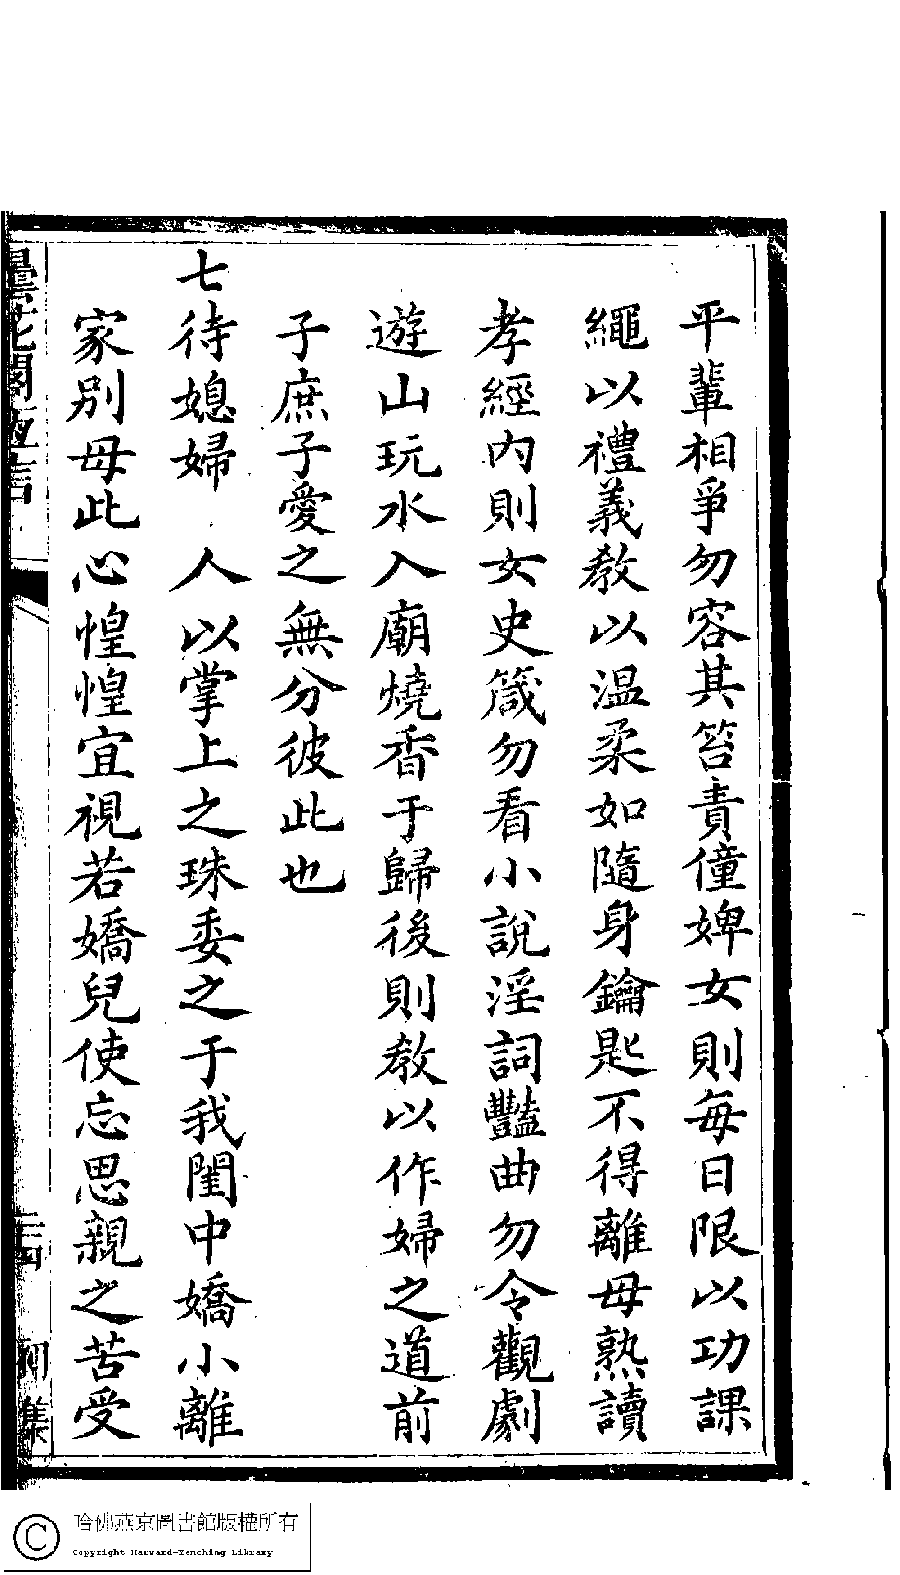 平輩相爭勿容其笞責僮婢女則每日限以功課
繩以禮義教以温柔如隨身鑰匙不得離母熟讀
孝經內則女史箴勿看小說淫詞豔曲勿令觀劇
遊山玩水入廟燒香于歸後則教以作婦之道前
子庶子愛之無分彼此也
七待媳婦　人以掌上之珠委之于我閨中嬌小離
家別母此心惶惶宜視若嬌兒使忘思親之苦受
曇花閣
初集
哈佛燕京圖書館版權所有
Copyright Harvard-Yenching Library